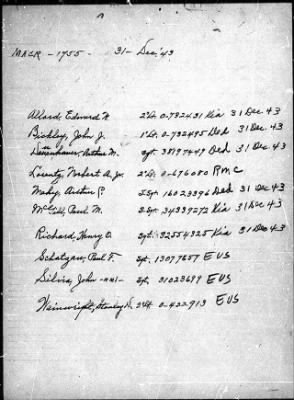 MACR - 1755 - 31 - Dec '43
Allard, Edward W 2"Lt. 0-732431 Kia 31 Dec 43
Bickley, John J. 1"Lt. 0-732495 Ded 31 Dec 43
Arthur M. Sgt. 38197449 Ded 31 Dec 43
Lorentz, Norbert A. Jr. 2"Lt. 0-676080 RMC
Mahy, Austin P. S.Sgt 16023396 Ded 31 Dec 43
Paul M. S.Sgt 34339272 Kia 31 Dec 43
Richard, Henry O. Sgt. 32554325 Kia 31 Dec 43
Schatzger, Paul F. Sgt. 13097657 EUS
Silvia, John -nmi- Sgt. 31023699 EUS
Wainwright, Stanley D. 0-422913 EUS